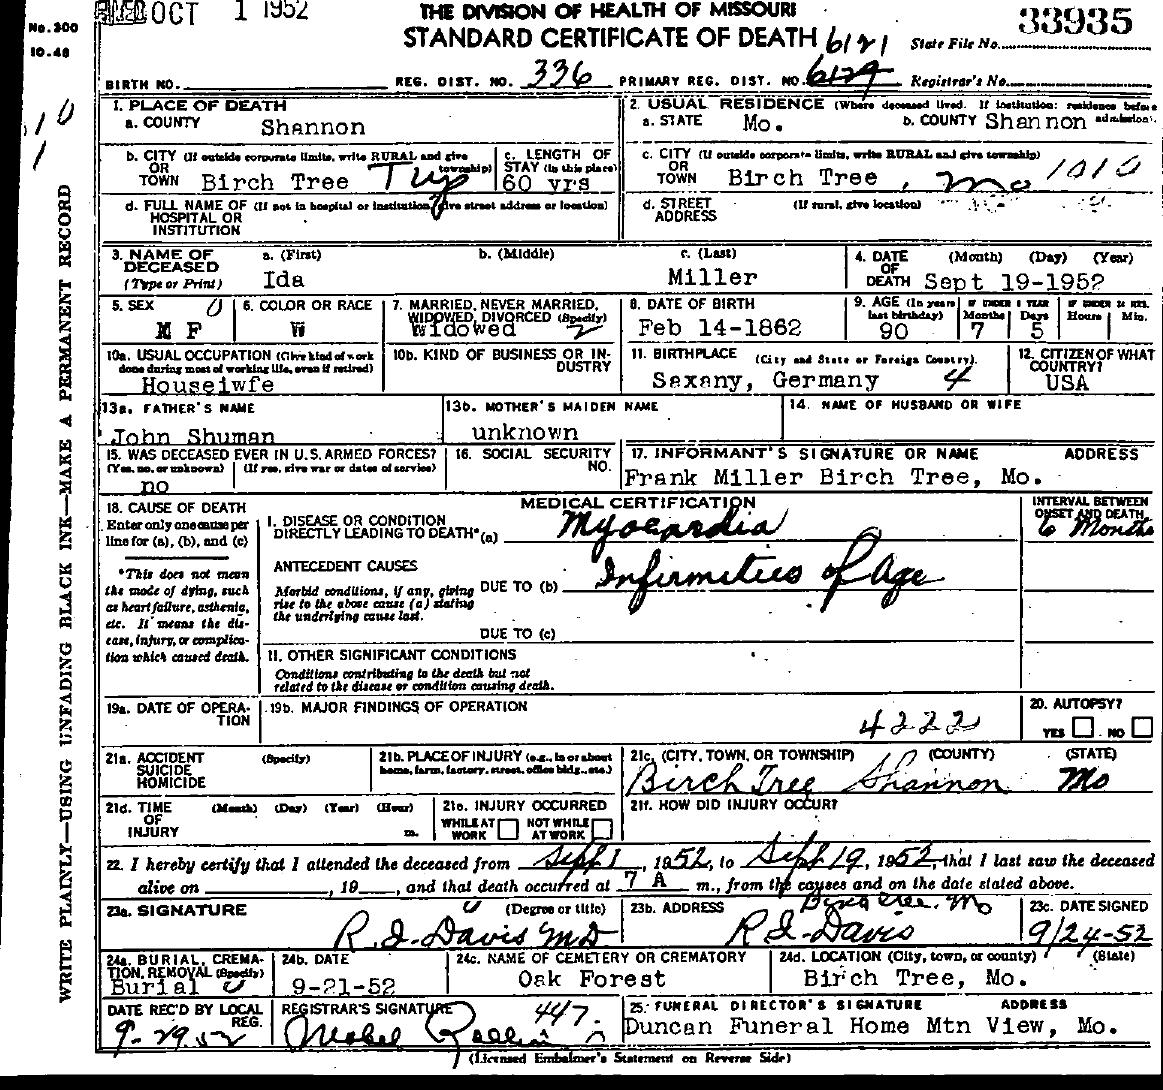 FILED OCT 1 1952
THE DIVISION OF HEALTH OF MISSOURI
33935
No. 300
10-48
STANDARD CERTIFICATE OF DEATH
6121
State File No.
BIRTH NO. REG. DIST. NO. 336 PRIMARY REG. DIST. NO. 6129 Registrar's No.
10
1
WRITE PLAINLY—USING UNFADING BLACK INK—MAKE A PERMANENT RECORD
1. PLACE OF DEATH
a. COUNTY Shannon
2. USUAL RESIDENCE (Where deceased lived. If institution: residence before admission).
a. STATE Mo. b. COUNTY Shannon
b. CITY (If outside corporate limits, write RURAL and give township)
OR
TOWN Birch Tree Twp
c. LENGTH OF
STAY (in this place)
60 yrs
c. CITY (If outside corporate limits, write RURAL and give township)
OR
TOWN Birch Tree, Mo 1010
d. FULL NAME OF (If not in hospital or institution, give street address or location)
HOSPITAL OR
INSTITUTION
d. STREET (If rural, give location)
ADDRESS
3. NAME OF
DECEASED
(Type or Print)
a. (First) b. (Middle) c. (Last)
Ida Miller
4. DATE (Month) (Day) (Year)
OF
DEATH Sept 19-1952
5. SEX
M F
6. COLOR OR RACE
W
7. MARRIED, NEVER MARRIED,
WIDOWED, DIVORCED (Specify)
Widowed 2
8. DATE OF BIRTH
Feb 14-1862
9. AGE (In years
last birthday)
90
IF UNDER 1 YEAR
Months Days
7 5
IF UNDER 24 HRS.
Hours Min.
10a. USUAL OCCUPATION (Give kind of work
done during most of working life, even if retired)
Houseiwfe
10b. KIND OF BUSINESS OR IN-
DUSTRY
11. BIRTHPLACE (City and State or Foreign Country).
Saxany, Germany 4
12. CITIZEN OF WHAT
COUNTRY?
USA
13a. FATHER'S NAME
John Shuman
13b. MOTHER'S MAIDEN NAME
unknown
14. NAME OF HUSBAND OR WIFE
15. WAS DECEASED EVER IN U.S. ARMED FORCES?
(Yes, no, or unknown) (If yes, give war or dates of service)
no
16. SOCIAL SECURITY
NO.
17. INFORMANT'S SIGNATURE OR NAME ADDRESS
Frank Miller Birch Tree, Mo.
18. CAUSE OF DEATH
Enter only one cause per
line for (a), (b), and (c)
*This does not mean
the mode of dying, such
as heart failure, asthenia,
etc. It means the dis-
ease, injury, or complica-
tion which caused death.
MEDICAL CERTIFICATION
I. DISEASE OR CONDITION
DIRECTLY LEADING TO DEATH* (a) Myocardia
INTERVAL BETWEEN
ONSET AND DEATH
6 Months
ANTECEDENT CAUSES
Morbid conditions, if any, giving
rise to the above cause (a) stating
the underlying cause last.
DUE TO (b) Infirmities of Age
DUE TO (c)
II. OTHER SIGNIFICANT CONDITIONS
Conditions contributing to the death but not
related to the disease or condition causing death.
19a. DATE OF OPERA-
TION
19b. MAJOR FINDINGS OF OPERATION
4222
20. AUTOPSY?
YES NO
21a. ACCIDENT (Specify)
SUICIDE
HOMICIDE
21b. PLACE OF INJURY (e.g., in or about
home, farm, factory, street, office bldg., etc.)
21c. (CITY, TOWN, OR TOWNSHIP) (COUNTY) (STATE)
Birch Tree Shannon Mo
21d. TIME (Month) (Day) (Year) (Hour)
OF
INJURY m.
21e. INJURY OCCURRED
WHILE AT WORK NOT WHILE AT WORK
21f. HOW DID INJURY OCCUR?
22. I hereby certify that I attended the deceased from Sept 1, 1952, to Sept 19, 1952, that I last saw the deceased
alive on , 19 , and that death occurred at 7 A m., from the causes and on the date stated above.
23a. SIGNATURE (Degree or title)
R. I. Davis M.D
23b. ADDRESS Birch Tree. Mo
R I. Davis
23c. DATE SIGNED
9/24-52
24a. BURIAL, CREMA-
TION, REMOVAL (Specify)
Burial
24b. DATE
9-21-52
24c. NAME OF CEMETERY OR CREMATORY
Oak Forest
24d. LOCATION (City, town, or county) (State)
Birch Tree, Mo.
DATE REC'D BY LOCAL
REG.
9-29-52
REGISTRAR'S SIGNATURE 447.
Mabel
25. FUNERAL DIRECTOR'S SIGNATURE ADDRESS
Duncan Funeral Home Mtn View, Mo.
(Licensed Embalmer's Statement on Reverse Side)